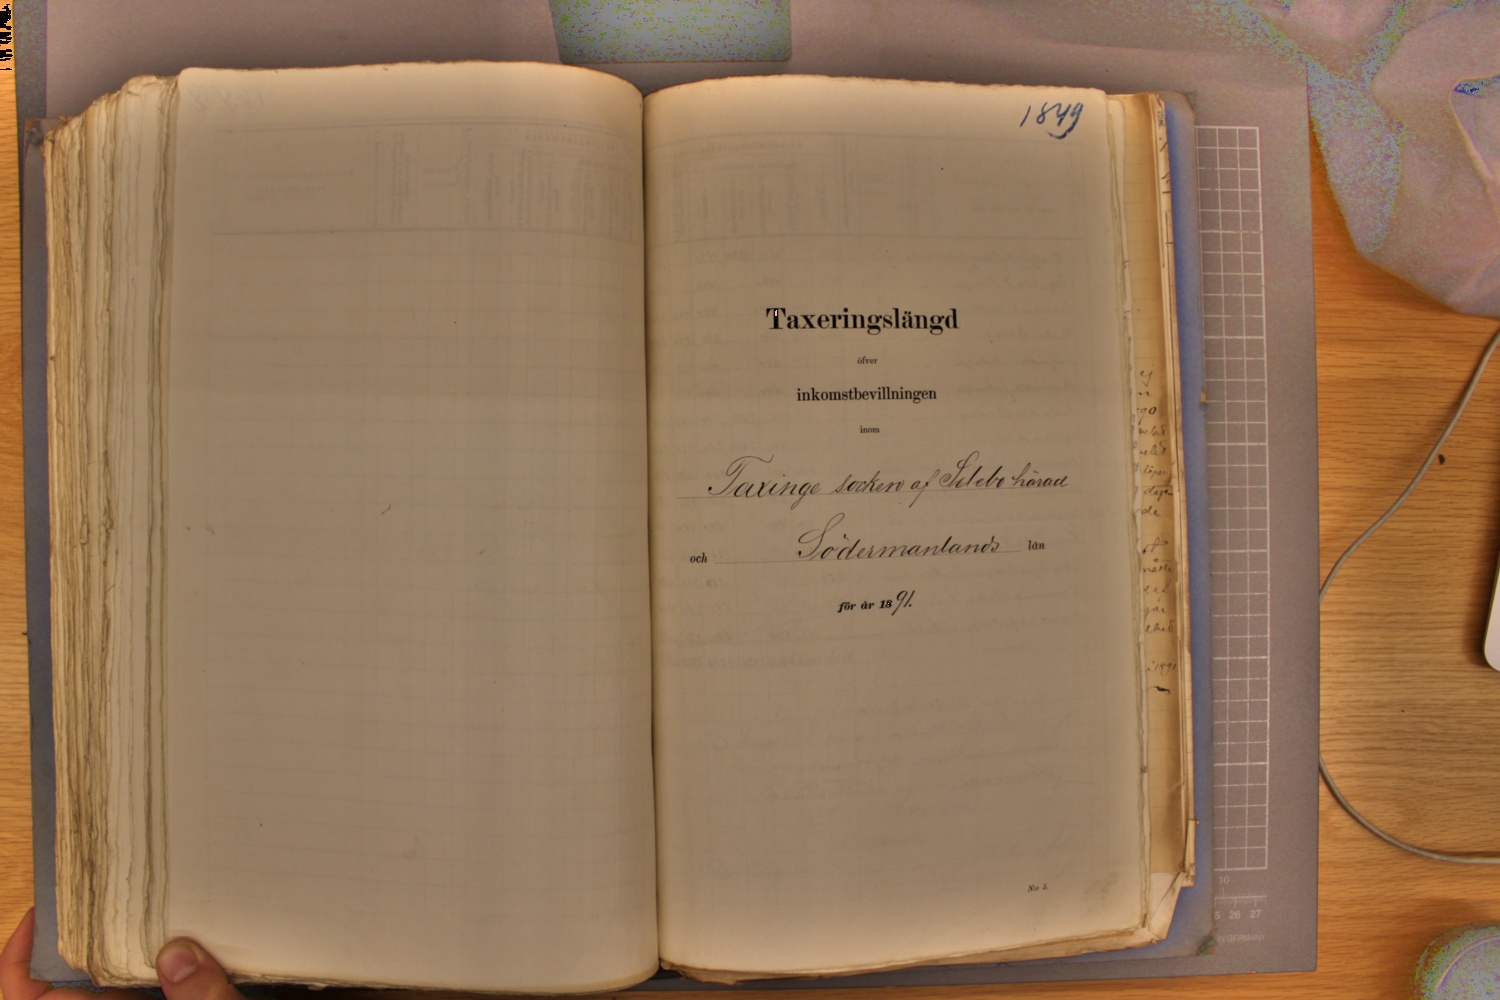 1849
Taxeringslängd
öfver
inkomstbevillningen
inom
Taxinge socken af Selebo härad
och Södermanlands län
för år 1891.
N:o 5.
10
5 26 27
N GERMANY